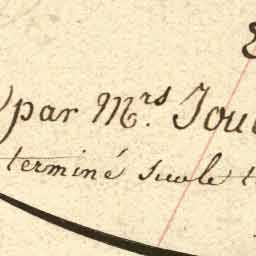 par Mrs. Jou
terminé sur le t